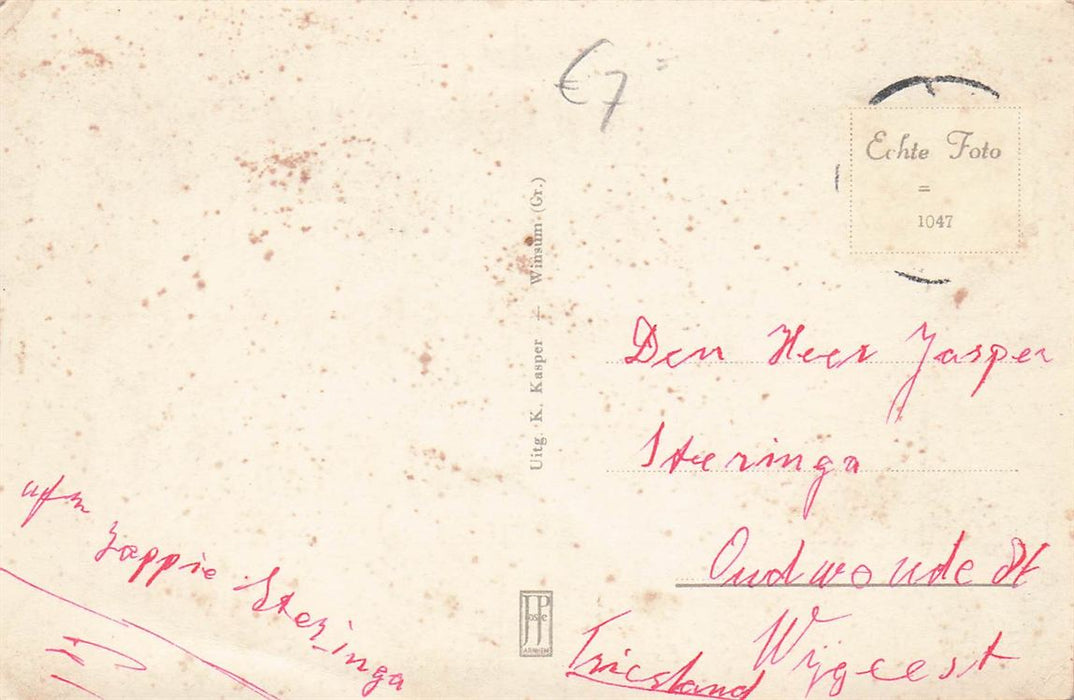 €7=
Echte Foto
=
1047
Uitg. K. Kasper — Winsum (Gr.)
Den Heer Jasper
Steringa
Oudwoude
Wygeest
Friesland
Jappie Steringa
JosPe
ARNHEM